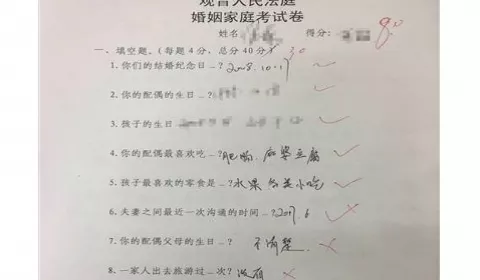 观音人民法庭
婚姻家庭考试卷
姓名 得分: 80
一、填空题、(每题4分, 总分40分) 30
1. 你们的结婚纪念日…? 2008.10.17
2. 你的配偶的生日…?
3. 孩子的生日
4. 你的配偶最喜欢吃…? 肥肠、麻婆豆腐
5. 孩子最喜欢的零食是…? 水果 各类小吃
6. 夫妻之间最近一次沟通的时间…? 2017.6
7. 你的配偶父母的生日…? 不清楚.
8. 一家人出去旅游过…次? 没有